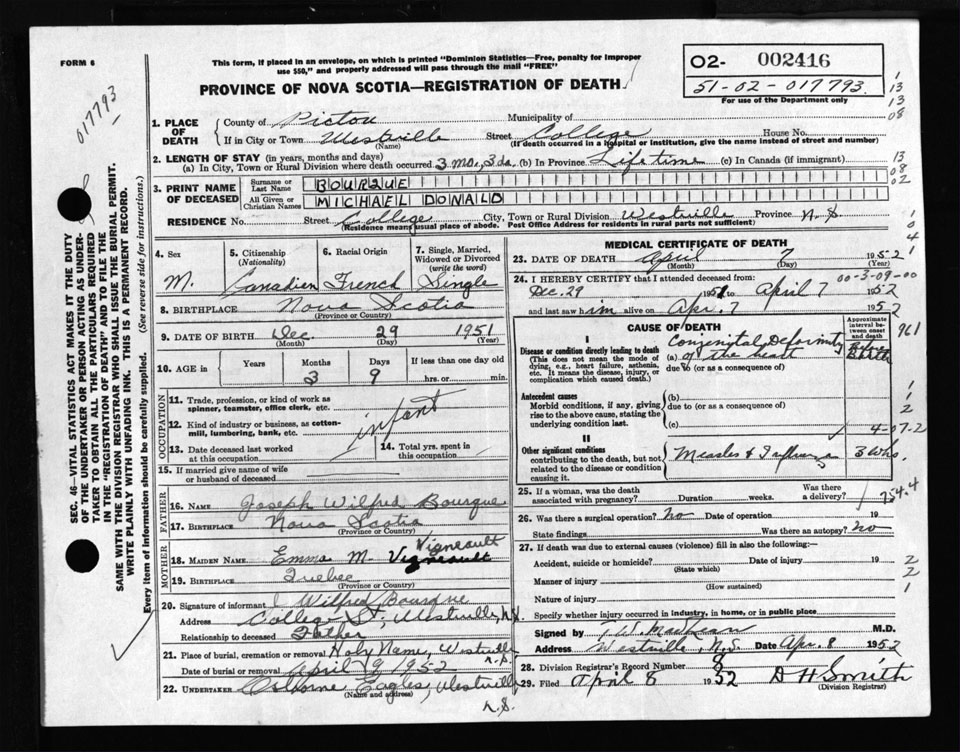 FORM 6
This form, if placed in an envelope, on which is printed "Dominion Statistics—Free, penalty for improper
use $50," and properly addressed will pass through the mail "FREE"
PROVINCE OF NOVA SCOTIA—REGISTRATION OF DEATH
O2- 002416
51-02-017793
For use of the Department only
017793
SEC. 46 - VITAL STATISTICS ACT MAKES IT THE DUTY
OF THE UNDERTAKER OR PERSON ACTING AS UNDER-
TAKER TO OBTAIN ALL THE PARTICULARS REQUIRED
IN THE "REGISTRATION OF DEATH" AND TO FILE THE
SAME WITH THE DIVISION REGISTRAR WHO SHALL ISSUE THE BURIAL PERMIT.
WRITE PLAINLY WITH UNFADING INK. THIS IS A PERMANENT RECORD.
Every item of information should be carefully supplied. (See reverse side for instructions.)
1. PLACE OF DEATH
County of Pictou Municipality of
If in City or Town Westville Street College House No.
(Name) (If death occurred in a hospital or institution, give the name instead of street and number)
2. LENGTH OF STAY (in years, months and days)
(a) In City, Town or Rural Division where death occurred 3 mo., 3 da. (b) In Province Life time (c) In Canada (if immigrant)
3. PRINT NAME OF DECEASED
Surname or Last Name BOURQUE
All Given or Christian Names MICHAEL DONALD
RESIDENCE No. Street College City, Town or Rural Division Westville Province N.S.
(Residence means usual place of abode. Post Office Address for residents in rural parts not sufficient)
4. Sex M.
5. Citizenship (Nationality) Canadien
6. Racial Origin French
7. Single, Married, Widowed or Divorced (write the word) Single
8. BIRTHPLACE Nova Scotia
(Province or Country)
9. DATE OF BIRTH Dec 29 1951
(Month) (Day) (Year)
10. AGE in Years Months 3 Days 9 If less than one day old
hrs. or min.
OCCUPATION
11. Trade, profession, or kind of work as spinner, teamster, office clerk, etc.
12. Kind of industry or business, as cotton-mill, lumbering, bank, etc. infant
13. Date deceased last worked at this occupation
14. Total yrs. spent in this occupation
15. If married give name of wife or husband of deceased
FATHER
16. NAME Joseph Wilfred Bourque
17. BIRTHPLACE Nova Scotia
(Province or Country)
MOTHER
Vigneault
18. MAIDEN NAME Emma M. Vigneault
19. BIRTHPLACE Quebec
(Province or Country)
20. Signature of informant Wilfred Bourque
Address College St, Westville, N.S.
Relationship to deceased Father
21. Place of burial, cremation or removal Holy Name, Westville
N.S.
Date of burial or removal April 9 1952
22. UNDERTAKER Osborne Eagles, Westville
(Name and address)
N.S.
MEDICAL CERTIFICATE OF DEATH
23. DATE OF DEATH April 7 1952
(Month) (Day) (Year)
00-3-09-00
24. I HEREBY CERTIFY that I attended deceased from:
Dec. 29 1951 to April 7 1952
and last saw him alive on Apr. 7 1952
CAUSE OF DEATH
Approximate interval between onset and death
I
Disease or condition directly leading to death
(This does not mean the mode of dying, e.g., heart failure, asthenia, etc. It means the disease, injury, or complication which caused death.)
Congenital Deformity
(a) of the heart
Birth
due to (or as a consequence of)
Antecedent causes
Morbid conditions, if any, giving rise to the above cause, stating the underlying condition last.
(b)
due to (or as a consequence of)
(c)
4-07-2
II
Other significant conditions
contributing to the death, but not related to the disease or condition causing it.
Measles & Influenza 3 wks.
25. If a woman, was the death associated with pregnancy? Duration weeks. Was there a delivery?
754.4
26. Was there a surgical operation? No Date of operation 19
State findings Was there an autopsy? No
27. If death was due to external causes (violence) fill in also the following:—
Accident, suicide or homicide? Date of injury 19
(State which)
Manner of injury
(How sustained)
Nature of injury
Specify whether injury occurred in industry, in home, or in public place
Signed by T. W. MacLean M.D.
Address Westville, N.S. Date Apr. 8 1952
28. Division Registrar's Record Number 8
29. Filed April 8 1952 D H Smith
(Division Registrar)